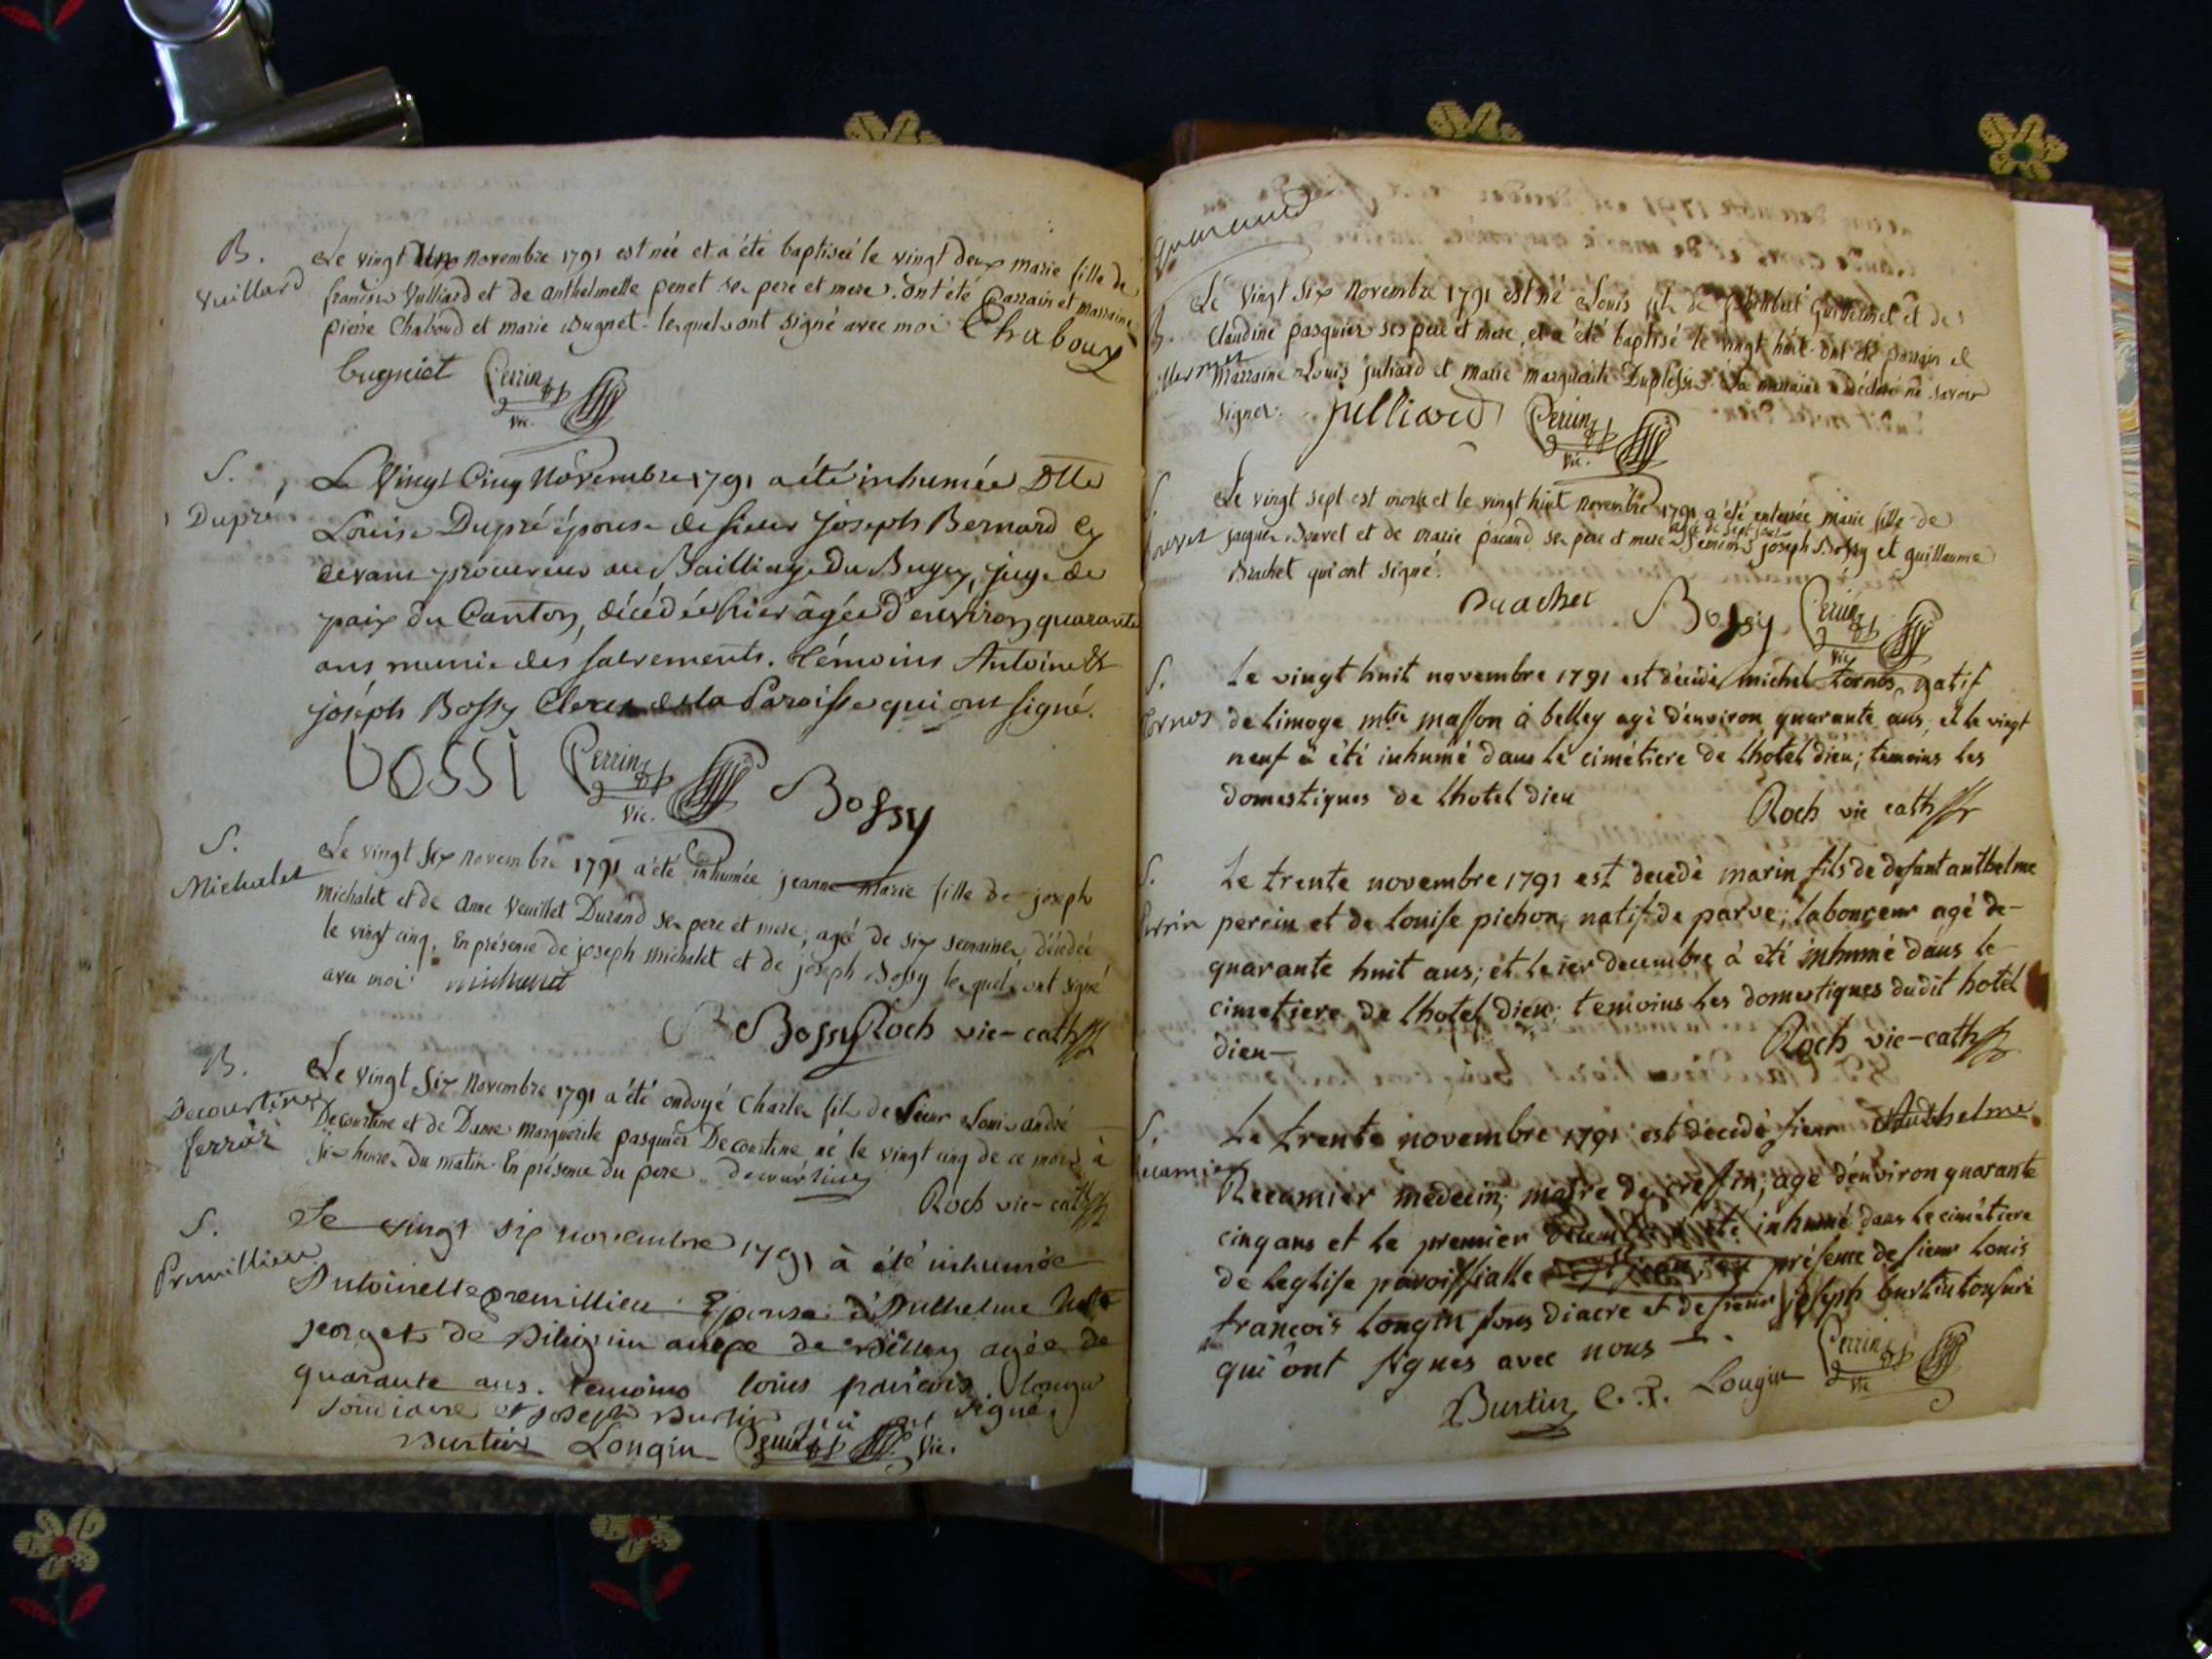 B.
Vuillard
Le vingt un novembre 1791 est née et a été baptisée le vingt deux marie fille de
Vulliard et de anthelmette penet ses pere et mere. ont été parrain et marraine
pierre Chaboud et marie Bugnet lesquels ont signé avec moi Chaboux
bugniet Perrin
vic.
S.
Dupré
Le Vingt Cinq Novembre 1791 a été inhumée Dlle
Louise Dupré épouse de sieur Joseph Bernard ex
devant procureur au Bailliage Du Bugey, juge de
paix du Canton, décédée hier âgée d'environ quarante
ans munie des sacrements. témoins Antoine &
joséph Bossy Clercs de la Paroisse qui ont signé.
bossi Perrin
vic. Bossy
S.
Michalet
Le vingt six novembre 1791 a été inhumée jeanne marie fille de joseph
michalet et de anne Veuillet Durand ses pere et mere, agée de six semaines, décédée
le vingt cinq. En présence de joseph michalet et de joseph Bossy lesquels ont signé
avec moi
Bossy Roch vic-cath
B.
Decourtine
ferrar
Le vingt six novembre 1791 a été ondoyé Charles fils de sieur Louis andré
Decourtine et de Dame marguerite pasquier Decourtine né le vingt cinq de ce mois à
six heures du matin. En présence du pere. decourtine
Roch vic-cath
S.
Premillieu
Le vingt six novembre 1791 à été inhumée
Antoinette premillieu Epouse d'Anthelme
jorget de anexe de agée de
quarante ans. temoins louis francois longin
soudiacre et joseph Burtin qui ont signé.
Burtin Longin Perrin vic.
B.
Le vingt six novembre 1791 est né Louis fils de philibert guillermet et de
Claudine pasquier ses pere et mere, et a été baptisé le vingt huit. ont été parrain et
marraine Louis julliard et marie marguerite Duplessis. la marraine a déclaré ne savoir
signer. julliard Perrin
vic.
S.
Le vingt sept est morte et le vingt huit novembre 1791 a été enterrée marie fille de
agée de sept jours
jacques Bovet et de marie pacaud ses pere et mere. Temoins joseph Bossy et guillaume
Brachet qui ont signé.
Brachet Bossy Perrin
vic
S.
tornos
Le vingt huit novembre 1791 est décédé michel tornos, natif
de limoge mtre masson à belley agé d'environ quarante ans, et le vingt
neuf a été inhumé dans le cimétiere de lhotel dieu; temoins les
domestiques de lhotel dieu
Roch vic cath
S.
perrin
Le trente novembre 1791 est decedé marin fils de defunt anthelme
perrin et de louise pichon, natif de parve, laboureur agé de-
quarante huit ans; et le 1er decembre à eté inhumé dans le
cimetiere de lhotel dieu; temoins les domestiques dudit hotel
dieu-
Roch vic-cath
S.
recamier
Le trente novembre 1791 est décédé sieur Anthelme
Recamier medecin, natif de cressin, agé d'environ quarante
cinq ans et le premier decembre a été inhumé dans le cimétiere
de leglise paroissialle présence de sieur louis
francois longin sous diacre et de sieur joseph burtin tonsuré
qui ont signés avec nous
Burtin C. T. Longin Perrin
vic